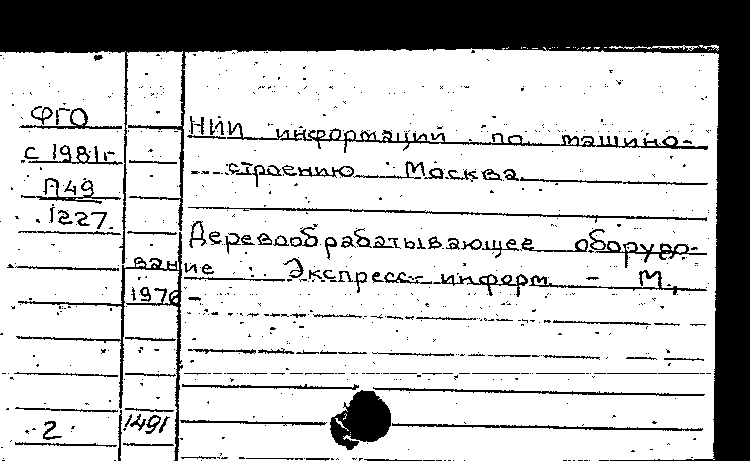 ФГО
с 1981г
П49
1227
НИИ информаций по машино-
строению Москва.
Деревообрабатывающее оборудо-
вание : Экспресс-информ. - М.,
1976 -
2 1491